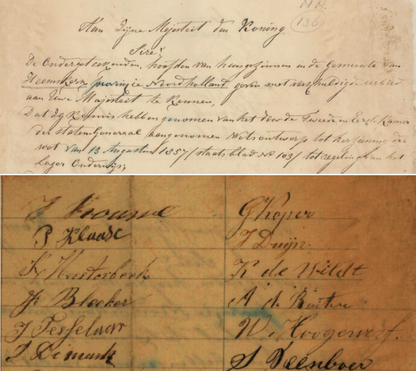 Aan Zijne Majesteit den Koning
Sire!
De Ondergeteekenden, hoofden van huisgezinnen in de Gemeente van
Heemskerk provincie Noordholland, geven met verschuldigde eerbied
aan Uwe Majesteit te kennen,
Dat zij kennis hebben genomen van het door de Tweede en Eerste Kamer
der Staten Generaal aangenomen Wetsontwerp tot herziening der
wet van 13 Augustus 1857 (Staatsblad No 103) tot regeling van het
Lager Onderwijs;
P. Klaase
G Kuper
J Duijn
K de Wildt
H Bleeker
A de Ruiter
J Tesselaar
W. Hoogewerf.
S Veenboer